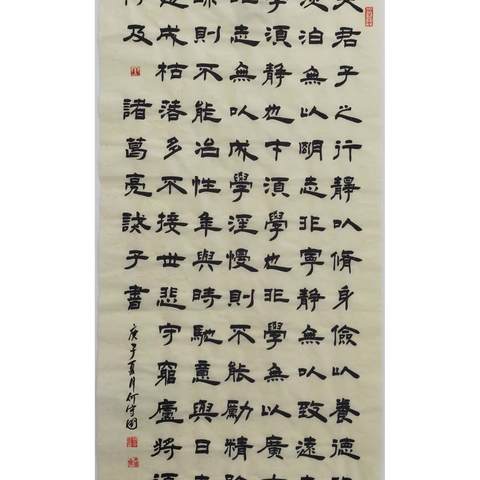 夫君子之行靜以脩身儉以養德
淡泊無以明志非寧靜無以致遠
學須靜也才須學也非學無以廣
志無以成學淫慢則不能勵精
躁則不能冶性年與時馳意與日
遂成枯落多不接世悲守窮廬將
何及
諸葛亮誡子書
庚子夏月何守國